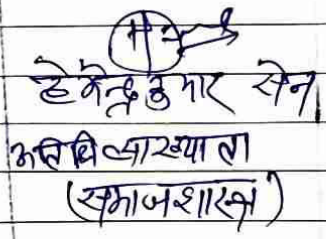 हेमेन्द्र कुमार सेन
अतिथि व्याख्याता
(समाजशास्त्र)